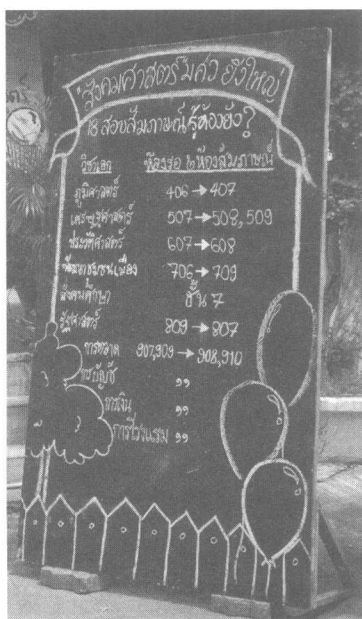 "สังคมศาสตร์ มศว ยิ่งใหญ่
18 สอบสัมภาษณ์รู้ห้องยัง?
วิชาเอก ห้องรอ ห้องสัมภาษณ์
ภูมิศาสตร์ 406 → 407
เศรษฐศาสตร์ 507 → 508, 509
ประวัติศาสตร์ 607 → 608
พัฒนาชุมชนเมือง 706 → 709
สังคมศึกษา ชั้น 7
รัฐศาสตร์ 809 → 807
การตลาด 907,909 → 908,910
การบัญชี "
การเงิน "
การโรงแรม "